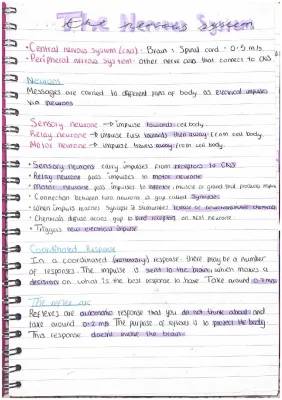 The Nervous System
• Central nervous system (CNS): Brain & Spinal cord · 0.5 m/s
• Peripheral nervous system: other nerve cells that connect to CNS
Neurons
Messages are carried to different parts of body as electrical impulses
via neurons
Sensory neurone → impulse towards cell body.
Relay neurone → impulse first towards then away from cell body.
Motor neurone → impulse travels away from cell body.
• Sensory neurons carry impulses from receptors to CNS
• Relay neuron pass impulses to motor neurone
• Motor neurone pass impulses to effector, muscle or gland that produces
• Connection between two neurons is gap called Synapses
• When impulse reaches synapse it stimulates release of neurotransmitter chemicals
• Chemicals diffuse across gap & bind receptors on next neurone
• Triggers new electrical impulse
Coordinated Response
In a coordinated response there may be a number
of responses. The impulse is sent to the brain, which makes a
decision on what is the best response to have. Take around 0.7 m/s
The reflex arc
Reflexes are automatic response that you do not think about and
take around 0.2 m/s. The purpose of reflexes is to protect the body.
This response doesn't involve the brain.